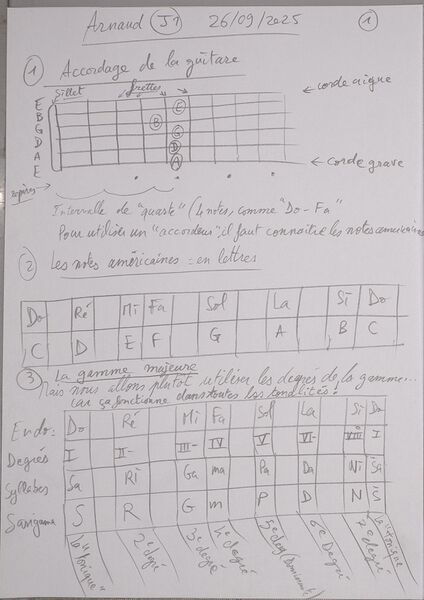 Arnaud J1 26/09/2025 1
1 Accordage de la guitare
Sillet frettes
← corde aigue
E
B
G
D
A
E
C
B
G
D
A
← corde grave
repères
Intervalle de "quarte" (4 notes, comme "Do - Fa"
Pour utiliser un "accordeur", il faut connaitre les notes américaines
2 Les notes américaines = en lettres
Do Ré Mi Fa Sol La Si Do
C D E F G A B C
3 La gamme majeure
Mais nous allons plutôt utiliser les degrés de la gamme...
car ça fonctionne dans toutes les tonalités!
En do: Do Ré Mi Fa Sol La Si Do
Degrés I II- III- IV V VI- VII I
Syllabes Sa Ri Ga ma Pa Da Ni Sa
Sargama S R G m P D N S
La "tonique" 2e degré 3e degré 4e degré 5e deg (dominante) 6e Degré 7e degré La tonique